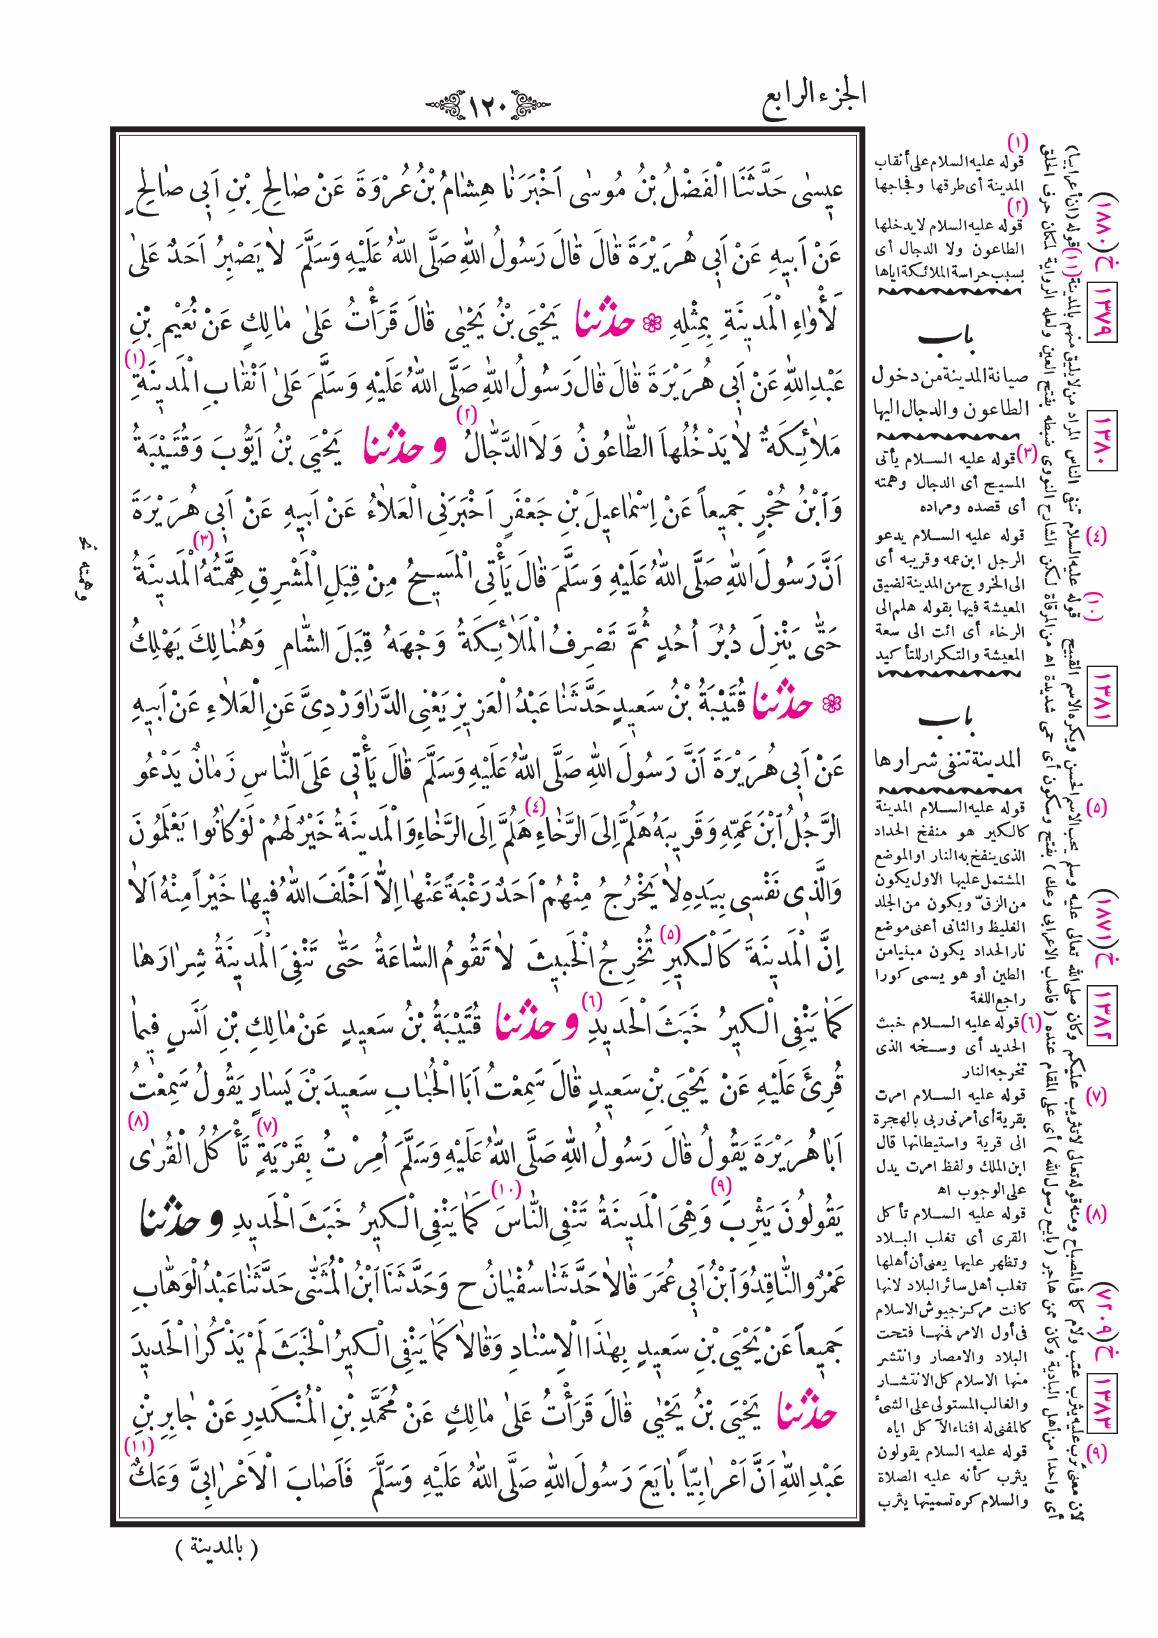 الجزء الرابع
١٢٠
عِيسٰى حَدَّثَنَا الْفَضْلُ بْنُ مُوسٰى اَخْبَرَنَا هِشَامُ بْنُ عُرْوَةَ عَنْ صَالِحِ بْنِ اَبِى صَالِحٍ
عَنْ اَبِيهِ عَنْ اَبِى هُرَيْرَةَ قَالَ قَالَ رَسُولُ اللهِ صَلَّى اللهُ عَلَيْهِ وَسَلَّمَ لَا يَصْبِرُ اَحَدٌ عَلىٰ
لَأْوَاءِ الْمَدِينَةِ بِمِثْلِهِ ❁ حدثنا يَحْيَى بْنُ يَحْيٰى قَالَ قَرَأْتُ عَلىٰ مَالِكٍ عَنْ نُعَيْمِ بْنِ
عَبْدِ اللهِ عَنْ اَبِى هُرَيْرَةَ قَالَ قَالَ رَسُولُ اللهِ صَلَّى اللهُ عَلَيْهِ وَسَلَّمَ عَلىٰ اَنْقَابِ الْمَدِينَةِ (١)
مَلَائِكَةٌ لَا يَدْخُلُهَا الطَّاعُونُ وَلَا الدَّجَّالُ (٢) وحدثنا يَحْيَى بْنُ اَيُّوبَ وَقُتَيْبَةُ
وَابْنُ حُجْرٍ جَمِيعاً عَنْ اِسْمَاعِيلَ بْنِ جَعْفَرٍ اَخْبَرَنِى الْعَلَاءُ عَنْ اَبِيهِ عَنْ اَبِى هُرَيْرَةَ
اَنَّ رَسُولَ اللهِ صَلَّى اللهُ عَلَيْهِ وَسَلَّمَ قَالَ يَأْتِى الْمَسِيحُ مِنْ قِبَلِ الْمَشْرِقِ هِمَّتُهُ (٣) الْمَدِينَةُ
حَتّٰى يَنْزِلَ دُبُرَ اُحُدٍ ثُمَّ تَصْرِفُ الْمَلَائِكَةُ وَجْهَهُ قِبَلَ الشَّامِ وَهُنَالِكَ يَهْلِكُ
❁ حدثنا قُتَيْبَةُ بْنُ سَعِيدٍ حَدَّثَنَا عَبْدُ الْعَزِيزِ يَعْنِى الدَّرَاوَرْدِىَّ عَنِ الْعَلَاءِ عَنْ اَبِيهِ
عَنْ اَبِى هُرَيْرَةَ اَنَّ رَسُولَ اللهِ صَلَّى اللهُ عَلَيْهِ وَسَلَّمَ قَالَ يَأْتِى عَلَى النَّاسِ زَمَانٌ يَدْعُو
الرَّجُلُ ابْنَ عَمِّهِ وَقَرِيبَهُ هَلُمَّ اِلَى الرَّخَاءِ (٤) هَلُمَّ اِلَى الرَّخَاءِ وَالْمَدِينَةُ خَيْرٌ لَهُمْ لَوْ كَانُوا يَعْلَمُونَ
وَالَّذِى نَفْسِى بِيَدِهِ لَا يَخْرُجُ مِنْهُمْ اَحَدٌ رَغْبَةً عَنْهَا اِلَّا اَخْلَفَ اللهُ فِيهَا خَيْراً مِنْهُ اَلَا
اِنَّ الْمَدِينَةَ كَالْكِيرِ (٥) تُخْرِجُ الْخَبِيثَ لَا تَقُومُ السَّاعَةُ حَتّٰى تَنْفِىَ الْمَدِينَةُ شِرَارَهَا
كَمَا يَنْفِى الْكِيرُ خَبَثَ الْحَدِيدِ (٦) وحدثنا قُتَيْبَةُ بْنُ سَعِيدٍ عَنْ مَالِكِ بْنِ اَنَسٍ فِيمَا
قُرِئَ عَلَيْهِ عَنْ يَحْيَى بْنِ سَعِيدٍ قَالَ سَمِعْتُ اَبَا الْحُبَابِ سَعِيدَ بْنَ يَسَارٍ يَقُولُ سَمِعْتُ
اَبَا هُرَيْرَةَ يَقُولُ قَالَ رَسُولُ اللهِ صَلَّى اللهُ عَلَيْهِ وَسَلَّمَ اُمِرْتُ بِقَرْيَةٍ (٧) تَأْكُلُ الْقُرٰى (٨)
يَقُولُونَ يَثْرِبَ (٩) وَهِىَ الْمَدِينَةُ تَنْفِى النَّاسَ (١٠) كَمَا يَنْفِى الْكِيرُ خَبَثَ الْحَدِيدِ وحدثنا
عَمْرٌو النَّاقِدُ وَابْنُ اَبِى عُمَرَ قَالَا حَدَّثَنَا سُفْيَانُ ح وَحَدَّثَنَا ابْنُ الْمُثَنّٰى حَدَّثَنَا عَبْدُ الْوَهَّابِ
جَمِيعاً عَنْ يَحْيَى بْنِ سَعِيدٍ بِهٰذَا الْاِسْنَادِ وَقَالَا كَمَا يَنْفِى الْكِيرُ الْخَبَثَ لَمْ يَذْكُرَا الْحَدِيدَ
حدثنا يَحْيَى بْنُ يَحْيٰى قَالَ قَرَأْتُ عَلىٰ مَالِكٍ عَنْ مُحَمَّدِ بْنِ الْمُنْكَدِرِ عَنْ جَابِرِ بْنِ
عَبْدِ اللهِ اَنَّ اَعْرَابِيّاً بَايَعَ رَسُولَ اللهِ صَلَّى اللهُ عَلَيْهِ وَسَلَّمَ فَاَصَابَ الْاَعْرَابِىَّ وَعَكٌ (١١)
( بالمدينة )
وهمته نخ
(١)
قوله عليه السلام على أنقاب
المدينة أى طرقها وفجاجها
(٢)
قوله عليه السلام لا يدخلها
الطاعون ولا الدجال أى
بسبب حراسة الملائكة اياها
باب
صيانة المدينة من دخول
الطاعون والدجال اليها
(٣) قوله عليه السلام يأتى
المسيح أى الدجال وهمته
أى قصده ومراده
(٤) قوله عليه السلام يدعو
الرجل ابن عمه وقريبه أى
الى الخروج من المدينة لضيق
المعيشة فيها بقوله هلم الى
الرخاء أى ائت الى سعة
المعيشة والتكرار للتأكيد
باب
المدينة تنفى شرارها
(٥) قوله عليه السلام المدينة
كالكير هو منفخ الحداد
الذى ينفخ به النار او الموضع
المشتمل عليها الاول يكون
من الزقّ ويكون من الجلد
الغليظ والثانى أعنى موضع
نار الحداد يكون مبنيا من
الطين أو هو يسمى كورا
راجع اللغة
(٦) قوله عليه السلام خبث
الحديد أى وسخه الذى
تخرجه النار
(٧) قوله عليه السلام امرت
بقرية أى أمرنى ربى بالهجرة
الى قرية واستيطانها قال
ابن الملك ولفظ امرت يدل
على الوجوب اه
(٨) قوله عليه السلام تأكل
القرى أى تغلب البلاد
وتظهر عليها يعنى أن أهلها
تغلب أهل سائر البلاد لانها
كانت مركز جيوش الاسلام
فى أول الامر فمنها فتحت
البلاد والامصار وانتشر
منها الاسلام كل الانتشار
والغالب المستولى على الشىء
كالمفنى له افناء الآكل اياه
(٩) قوله عليه السلام يقولون
يثرب كأنه عليه الصلاة
والسلام كره تسميتها يثرب
لان معنى ثرب عليه يثرب عتب ولام كما فى المصباح ومنه قوله تعالى لا تثريب عليكم وكان صلى الله تعالى عليه وسلم يحب الاسم الحسن ويكره الاسم القبيح (١٠) قوله عليه السلام تنفى الناس المراد من لا يليق منهم بالمدينة (١١) قوله (ان أعرابيا)
أى واحدا من أهل البادية وكان ممن هاجر (بايع رسول الله) أى على المقام عنده (فاصاب الاعرابى وعك) بفتح وسكون أى حمى شديدة اه من المرقاة لكن الشارح النووى ضبطه بفتح العين ولعله الرواية لمكان حرف الحلق
خ (١٨٨٠)
١٣٧٩
١٣٨٠
١٣٨١
خ (١٨٧١)
١٣٨٢
خ (٧٢٠٩)
١٣٨٣